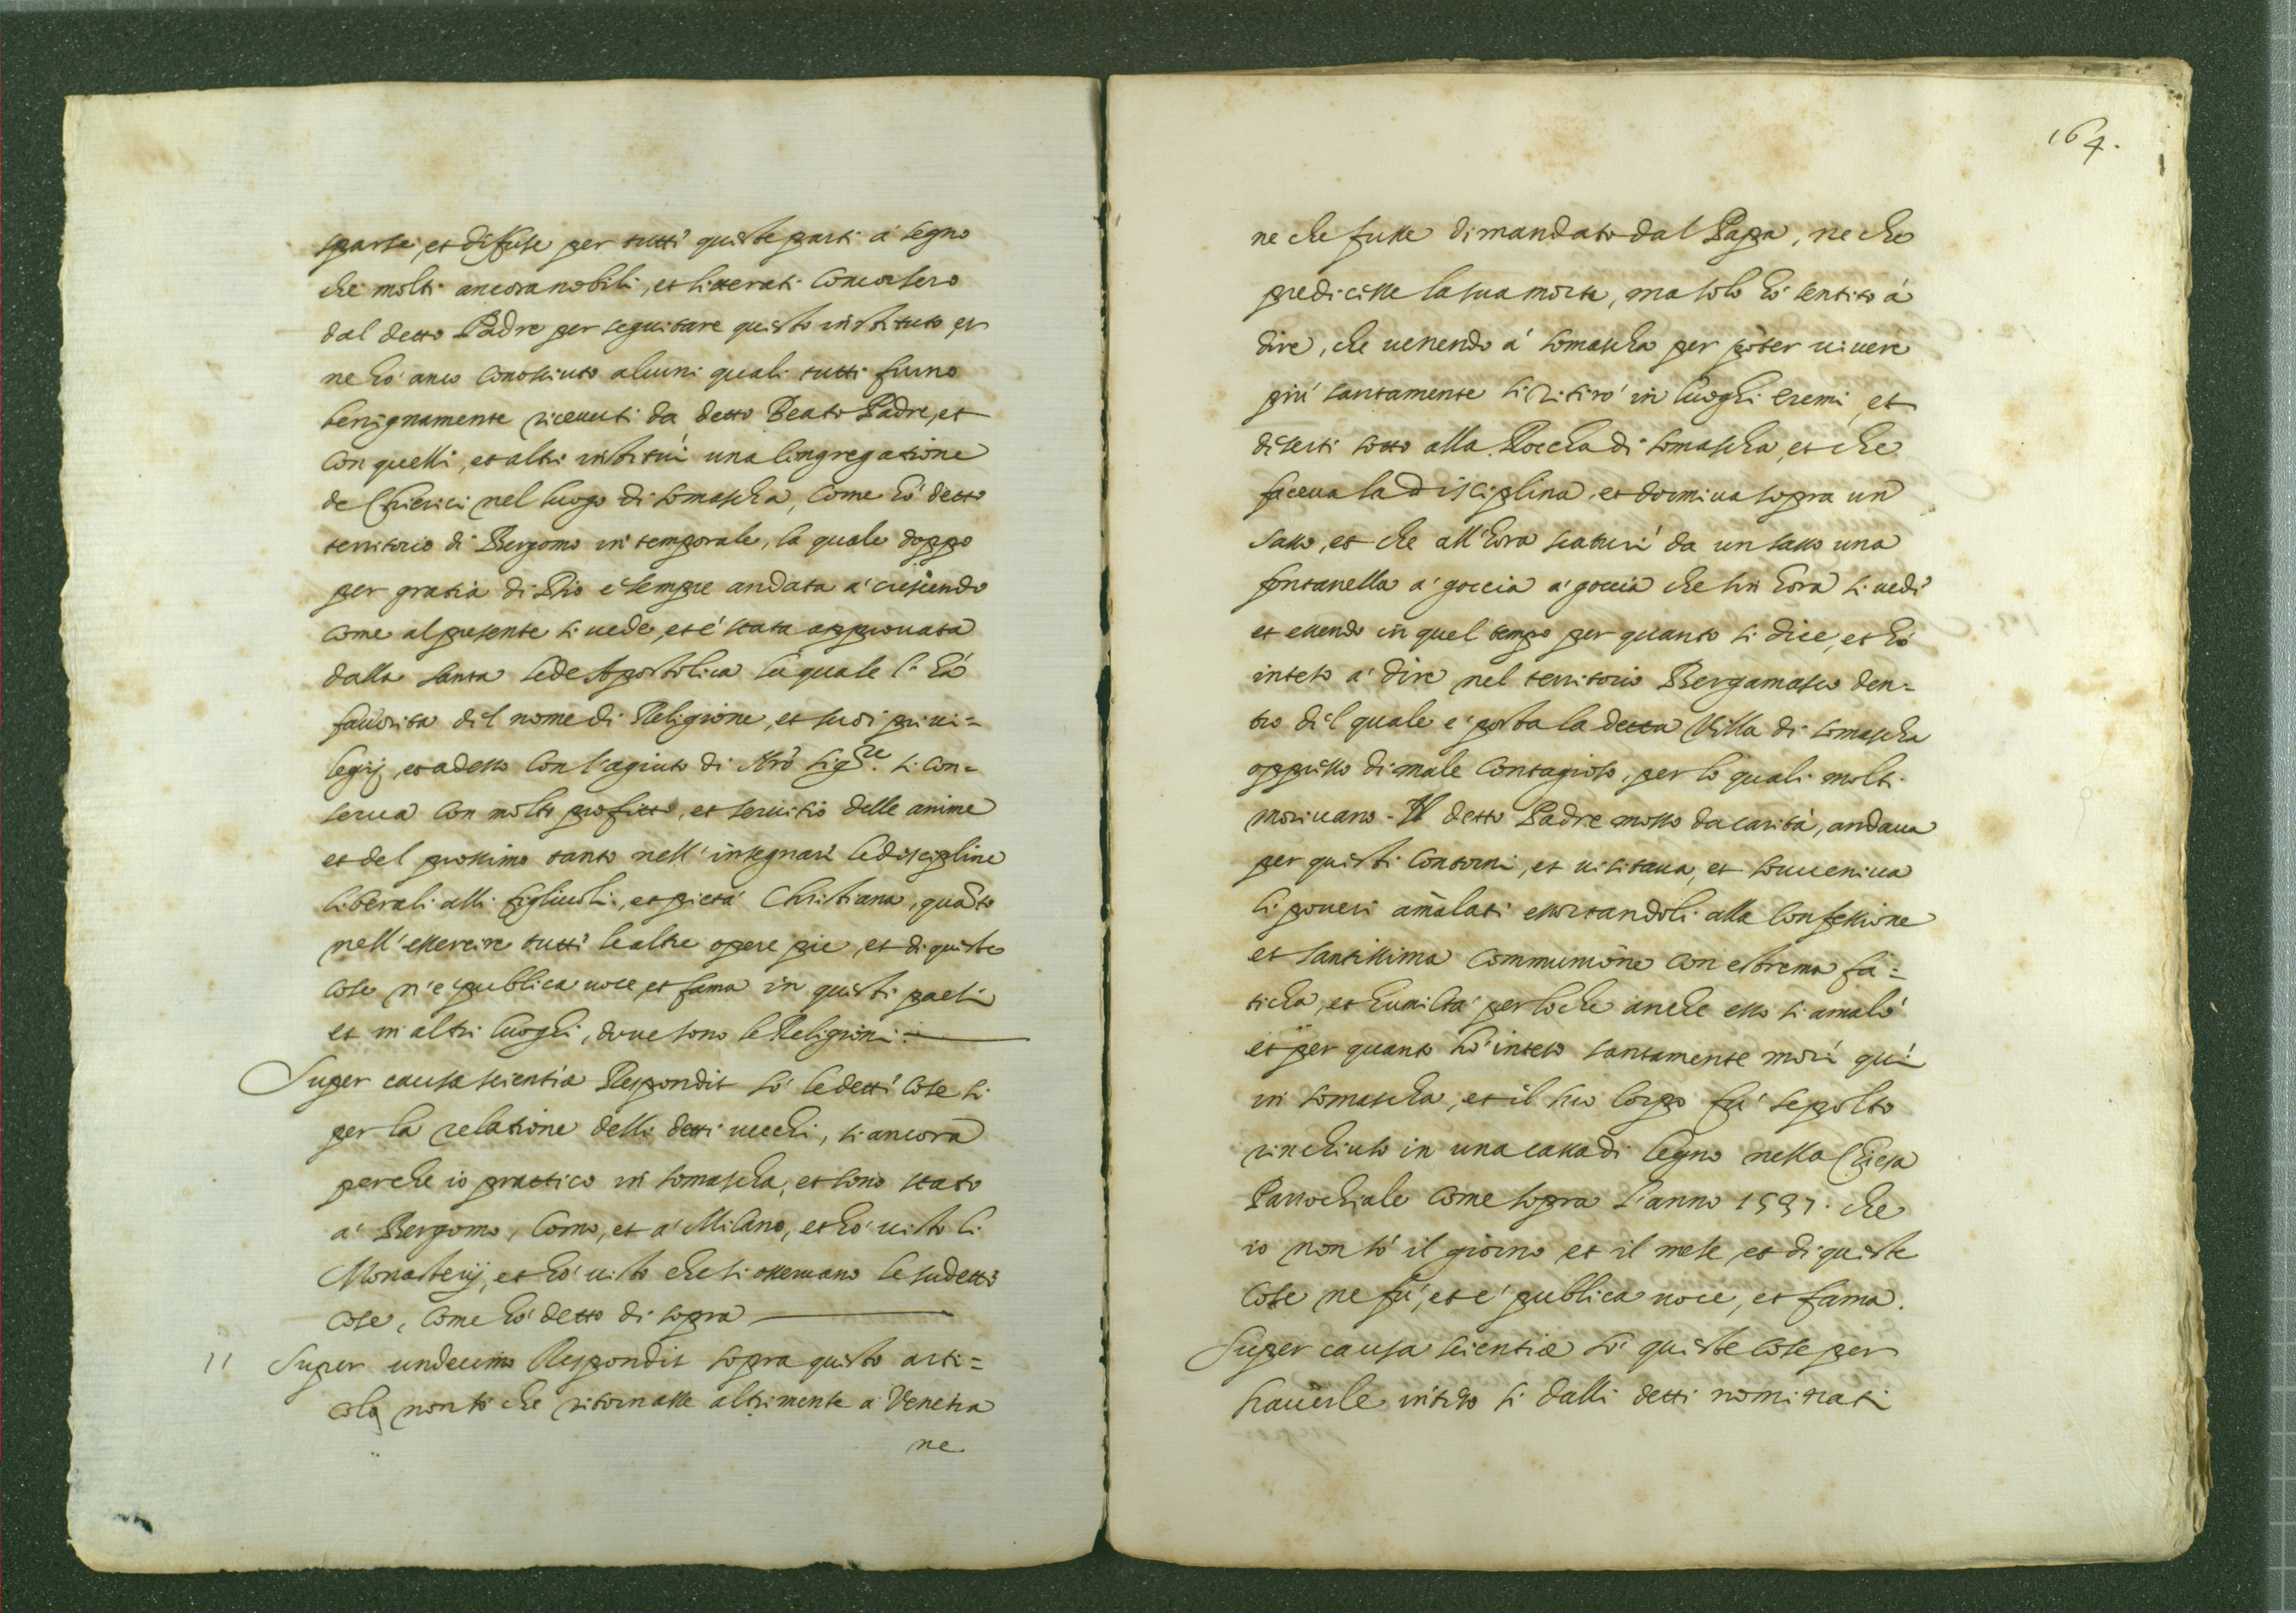 sparse, et diffuse per tutti queste parti à segno
che molti ancora nobili, et litterati concorsero
dal detto Padre per seguitare questo instituto, et
ne hò anco conosciuto alcuni quali tutti furno
benignamente riceuuti da detto Beato Padre, et
con quelli, et altri instituì una Congregatione
de Chierici nel luogo di Somascha, come hò detto
territorio di Bergomo in temporale, la quale doppo
per gratia di Dio è sempre andata à crescendo
come al presente si uede, et è stata approuata
dalla santa sede Apostolica la quale l'hà
fauorita del nome di Religione, et suoi priui=
legij, et adesso con l'agiuto di Nrõ Sigre. si con=
serua con molto profitto, et seruitio delle anime
et del prossimo tanto nell'insegnare le discipline
liberali alli figliuoli, et pietà Christiana, quãto
nell'essercire tutti le altre opere pie, et di queste
cose n'è publica uoce, et fama in questi paesi
et in altri luoghi, doue sono le Religioni.
Super causa scientiæ Respondit sò le detti cose si
per la relatione delli detti uecchi, si ancora
perche io prattico in Somascha, et sono stato
à Bergomo, Como, et à Milano, et hò uisto li
Monasterij, et hò uisto che si osseruano le sudetti
cose, come hò detto di sopra
11 Super undecimo Respondit sopra questo arti=
colo non sò che ritornasse altrimente à Venetia
ne
164.
ne che fusse dimandato dal Papa, ne che
predicisse la sua morte, ma solo hò sentito à
dire, che uenendo à Somascha per poter uiuere
più santamente si ritirò in luoghi eremi, et
deserti sotto alla Roccha di Somascha, et che
faceua la disciplina, et dormiua sopra un
sasso, et che all'hora scaturì da un sasso una
fontanella à goccia à goccia che sin hora si uede
et essendo in quel tempo per quanto si dice, et hò
inteso à dire nel territorio Bergamasco den=
tro del quale è posta la detta Villa di Somascha
oppresso di male contagioso, per lo quali molti
moriuano. Il detto Padre mosso da carità, andaua
per questi contorni, et uisitaua, et souueniua
li poueri amalati essortandoli alla Confessione
et santissima communione con estrema fa=
ticha, et humiltà per loche anche esso si amalò
et per quanto hò inteso santamente morì quì
in Somascha, et il suo corpo fù sepolto
rinchiuso in una cassa di legno nella Chiesa
Parrochiale come sopra l'anno 1537. che
io non sò il giorno et il mese, et di queste
cose ne fù, et è publica uoce, et fama.
Super causa scientiæ sò queste cose per
hauerle inteso si dalli detti nominati